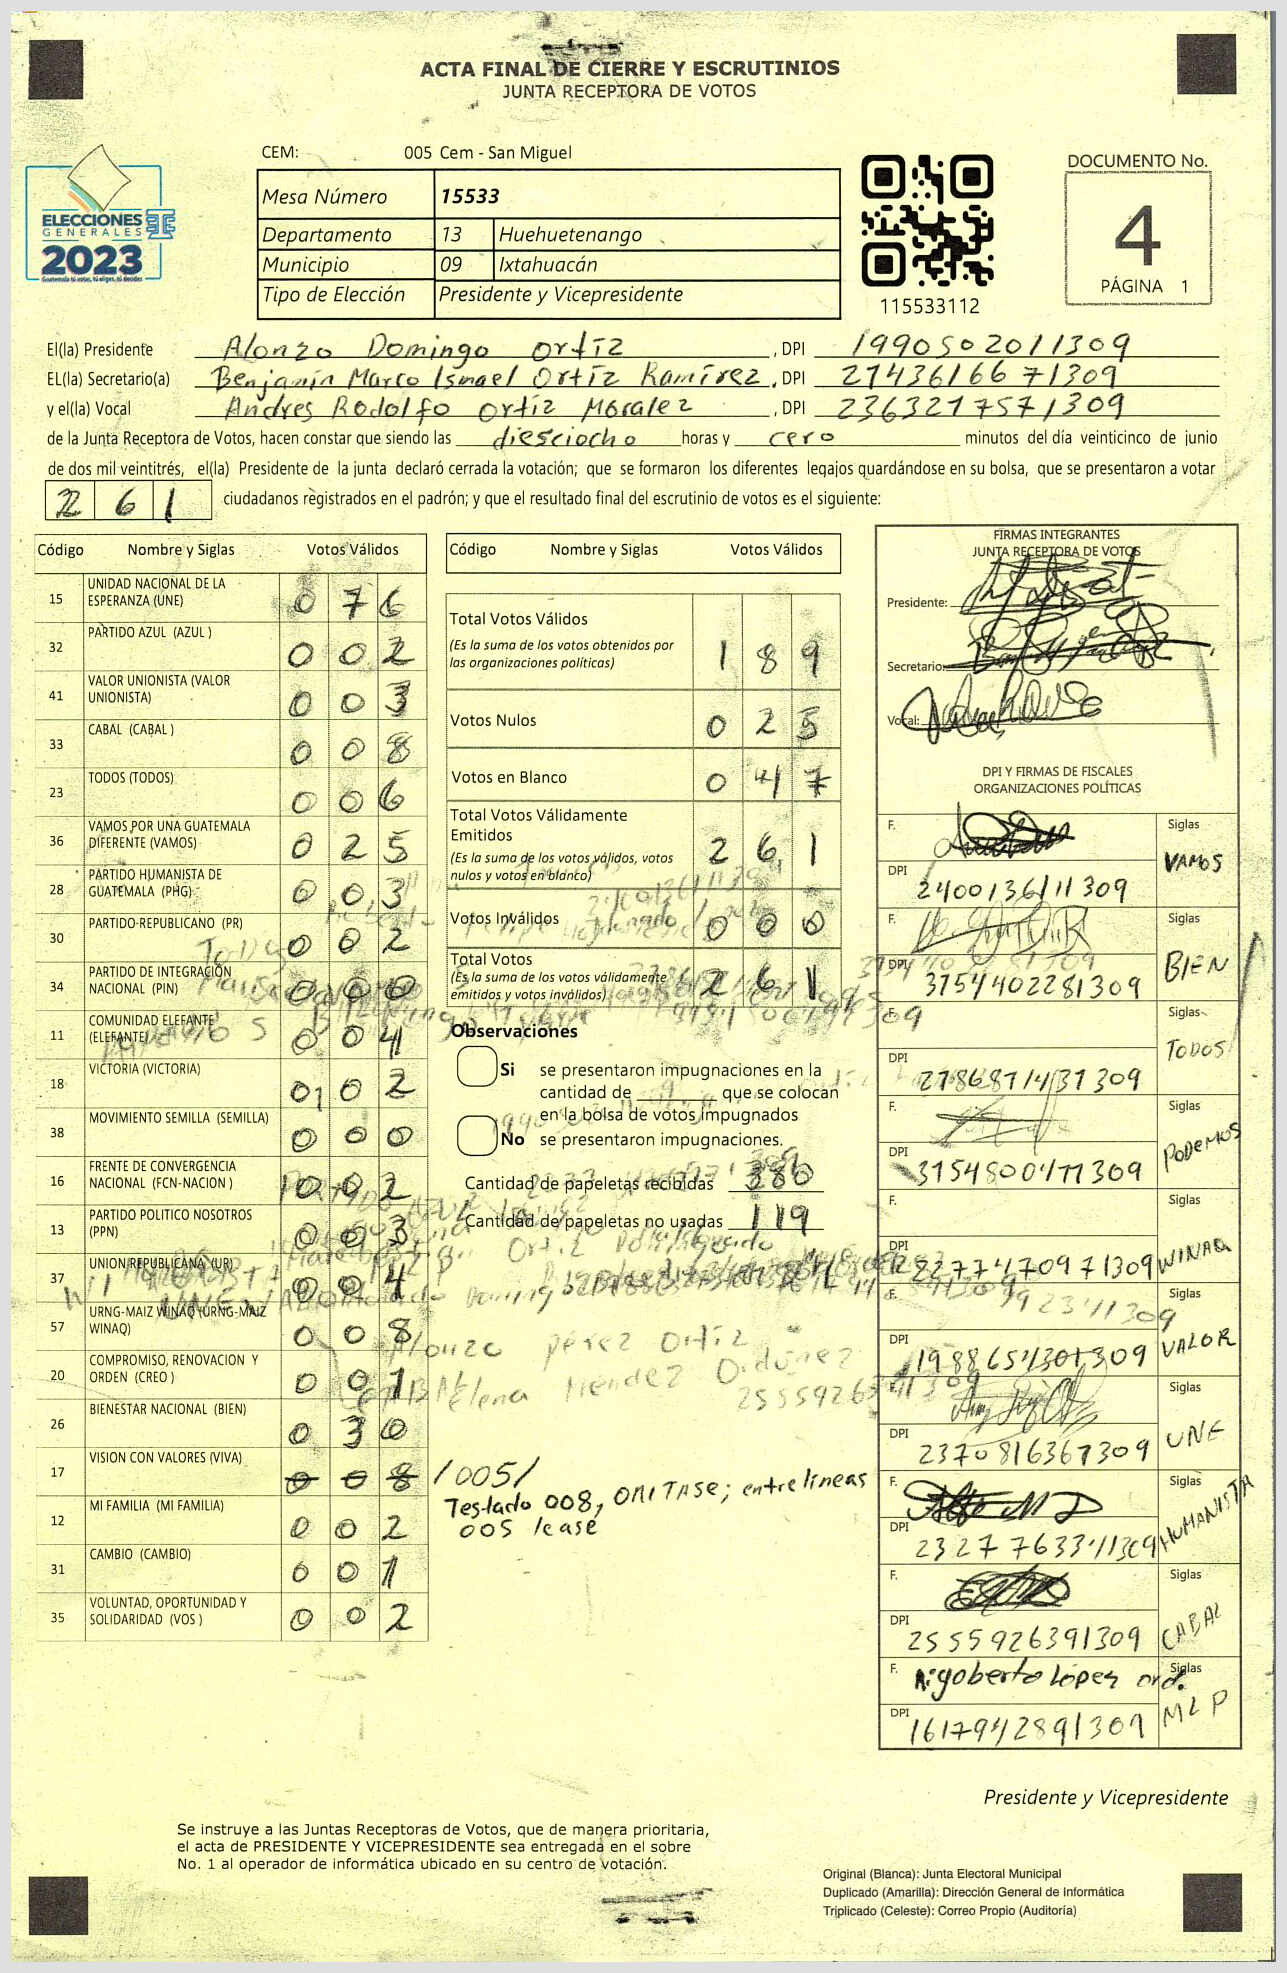 ACTA FINAL DE CIERRE Y ESCRUTINIOS
JUNTA RECEPTORA DE VOTOS
CEM: 005 Cem - San Miguel
ELECCIONES
GENERALES
2023
Guatemala tú votas, tú eliges, tú decides
Mesa Número 15533
Departamento 13 Huehuetenango
Municipio 09 Ixtahuacán
Tipo de Elección Presidente y Vicepresidente
115533112
DOCUMENTO No.
4
PÁGINA 1
El(la) Presidente Alonzo Domingo Ortíz , DPI 1990502011309
EL(la) Secretario(a) Benjamín Marco Ismael Ortíz Ramírez , DPI 2143616671309
y el(la) Vocal Andres Rodolfo Ortíz Moralez , DPI 2363217571309
de la Junta Receptora de Votos, hacen constar que siendo las diesciocho horas y cero minutos del día veinticinco de junio
de dos mil veintitrés, el(la) Presidente de la junta declaró cerrada la votación; que se formaron los diferentes legajos guardándose en su bolsa, que se presentaron a votar
261 ciudadanos registrados en el padrón; y que el resultado final del escrutinio de votos es el siguiente:
Código Nombre y Siglas Votos Válidos
15 UNIDAD NACIONAL DE LA ESPERANZA (UNE) 076
32 PARTIDO AZUL (AZUL ) 002
41 VALOR UNIONISTA (VALOR UNIONISTA) 003
33 CABAL (CABAL ) 008
23 TODOS (TODOS) 006
36 VAMOS POR UNA GUATEMALA DIFERENTE (VAMOS) 025
28 PARTIDO HUMANISTA DE GUATEMALA (PHG) 003
30 PARTIDO REPUBLICANO (PR) 002
34 PARTIDO DE INTEGRACIÓN NACIONAL (PIN) 000
11 COMUNIDAD ELEFANTE (ELEFANTE) 004
18 VICTORIA (VICTORIA) 002
38 MOVIMIENTO SEMILLA (SEMILLA) 000
16 FRENTE DE CONVERGENCIA NACIONAL (FCN-NACION ) 002
13 PARTIDO POLITICO NOSOTROS (PPN) 003
37 UNION REPUBLICANA (UR) 004
57 URNG-MAIZ WINAQ (URNG-MAIZ WINAQ) 008
20 COMPROMISO, RENOVACION Y ORDEN (CREO ) 001
26 BIENESTAR NACIONAL (BIEN) 030
17 VISION CON VALORES (VIVA) 008 /005/
Testado 008, OMITASE; entrelíneas
005 lease
12 MI FAMILIA (MI FAMILIA) 002
31 CAMBIO (CAMBIO) 001
35 VOLUNTAD, OPORTUNIDAD Y SOLIDARIDAD (VOS ) 002
Código Nombre y Siglas Votos Válidos
Total Votos Válidos 189
(Es la suma de los votos obtenidos por
las organizaciones políticas)
Votos Nulos 025
Votos en Blanco 047
Total Votos Válidamente
Emitidos 261
(Es la suma de los votos válidos, votos
nulos y votos en blanco)
Votos Inválidos 000
Total Votos 261
(Es la suma de los votos válidamente
emitidos y votos inválidos)
Observaciones
Si se presentaron impugnaciones en la
cantidad de ________ que se colocan
en la bolsa de votos impugnados
No se presentaron impugnaciones.
Cantidad de papeletas recibidas 380
Cantidad de papeletas no usadas 119
Alonzo perez Ortíz
Elena Méndez Ordóñez
FIRMAS INTEGRANTES
JUNTA RECEPTORA DE VOTOS
Presidente:
Secretario:
Vocal:
DPI Y FIRMAS DE FISCALES
ORGANIZACIONES POLÍTICAS
F. Siglas VAMOS
DPI 2400136111309
F. Siglas BIEN
DPI 3154402281309
F. Siglas TODOS
DPI 2786871431309
F. Siglas PODEMOS
DPI 3154800471309
F. Siglas WINAQ
DPI 2277470971309
F. Siglas VALOR
DPI 1988651301309
F. Siglas UNE
DPI 2370816361309
F. Siglas HUMANISTA
DPI 2327763341309
F. Siglas CABAL
DPI 2555926391309
F. Rigoberto López ord. Siglas MLP
DPI 1617942891309
Presidente y Vicepresidente
Se instruye a las Juntas Receptoras de Votos, que de manera prioritaria,
el acta de PRESIDENTE Y VICEPRESIDENTE sea entregada en el sobre
No. 1 al operador de informática ubicado en su centro de votación.
Original (Blanca): Junta Electoral Municipal
Duplicado (Amarilla): Dirección General de Informática
Triplicado (Celeste): Correo Propio (Auditoría)